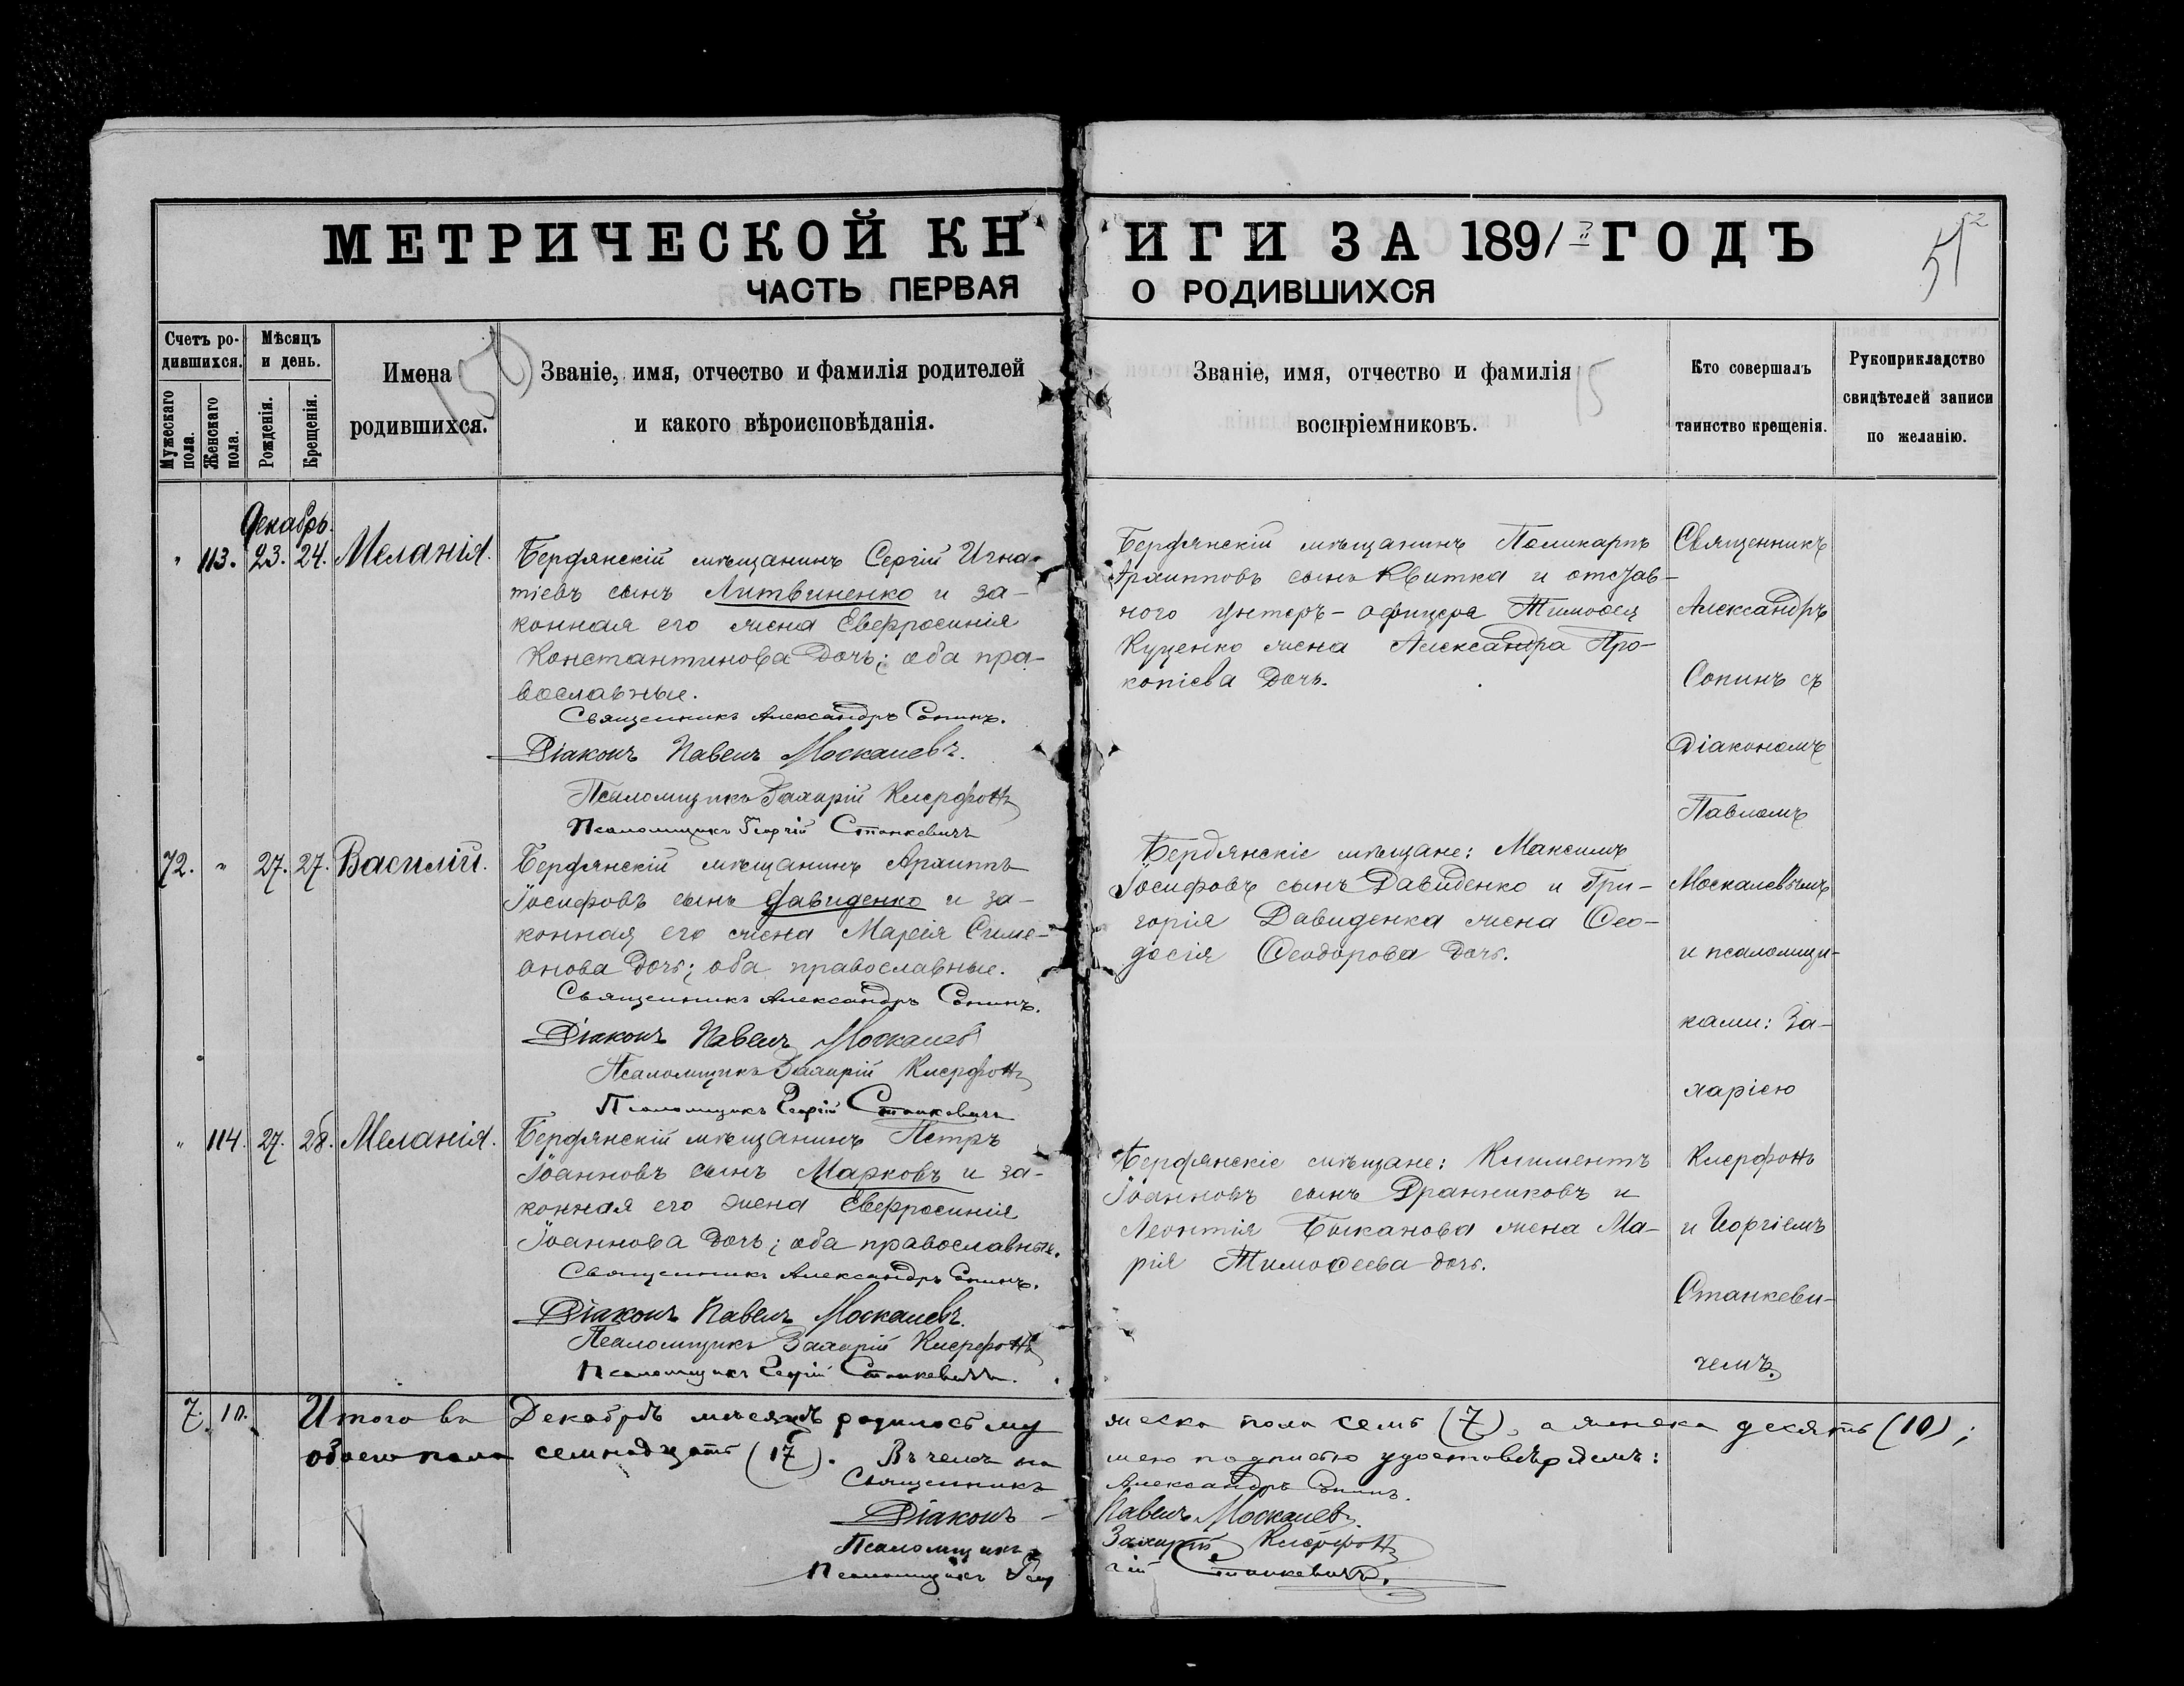 МЕТРИЧЕСКОЙ КНИГИ ЗА 1891 ГОДЪ
ЧАСТЬ ПЕРВАЯ О РОДИВШИХСЯ
Счетъ родившихся.
Мужескаго пола.
Женскаго пола.
Мѣсяцъ и день.
Рожденія.
Крещенія.
Имена
родившихся.
Званіе, имя, отчество и фамилія родителей
и какого вѣроисповѣданія.
Званіе, имя, отчество и фамилія
воспріемниковъ.
Кто совершалъ
таинство крещенія.
Рукоприкладство
свидѣтелей записи
по желанію.
Декабрь.
" 113. 23. 24. Меланія.
Бердянскій мѣщанинъ Сергій Игна-
тіевъ сынъ Литвиненко и за-
конная его жена Евфросинія
Константинова дочь; оба пра-
вославные.
Священникъ Александръ Сопинъ.
Діаконъ Павелъ Москалевъ.
Псаломщикъ Захарій Клерфонъ
Псаломщикъ Георгій Станкевичъ
Бердянскій мѣщанинъ Поликарпъ
Архипповъ сынъ Квитка и отстав-
ного унтеръ-офицера Тимоѳея
Куценко жена Александра Про-
копіева дочь.
72. " 27. 27. Василій.
Бердянскій мѣщанинъ Архиппъ
Іосифовъ сынъ Давиденко и за-
конная его жена Марія Симе-
онова дочь; оба православные.
Священникъ Александръ Сопинъ.
Діаконъ Павелъ Москалевъ
Псаломщикъ Захарій Клерфонъ
Псаломщикъ Георгій Станкевичъ
Бердянскіе мѣщане: Максимъ
Іосифовъ сынъ Давиденко и Гри-
горія Давиденка жена Ѳео-
досія Ѳеодорова дочь.
" 114. 27. 28. Меланія.
Бердянскій мѣщанинъ Петръ
Іоанновъ сынъ Марковъ и за-
конная его жена Евфросинія
Іоаннова дочь; оба православные.
Священникъ Александръ Сопинъ.
Діаконъ Павелъ Москалевъ.
Псаломщикъ Захарій Клерфонъ
Псаломщикъ Георгій Станкевичъ.
Бердянскіе мѣщане: Климентъ
Іоанновъ сынъ Дранниковъ и
Леонтія Быканова жена Ма-
рія Тимоѳеева дочь.
Священникъ
Александръ
Сопинъ съ
діакономъ
Павломъ
Москалевымъ
и псаломщи-
ками: За-
харіею
Клерфонъ
и Георгіемъ
Станкеви-
чемъ.
7. 10. Итого въ Декабрѣ мѣсяцѣ родилось мужеска пола семь (7), а женска десять (10);
обоего пола семнадцать (17). Въ чемъ нашею подписью удостовѣряемъ:
Священникъ Александръ Сопинъ.
Діаконъ Павелъ Москалевъ.
Псаломщикъ Захарій Клерфонъ
Псаломщикъ Георгій Станкевичъ.